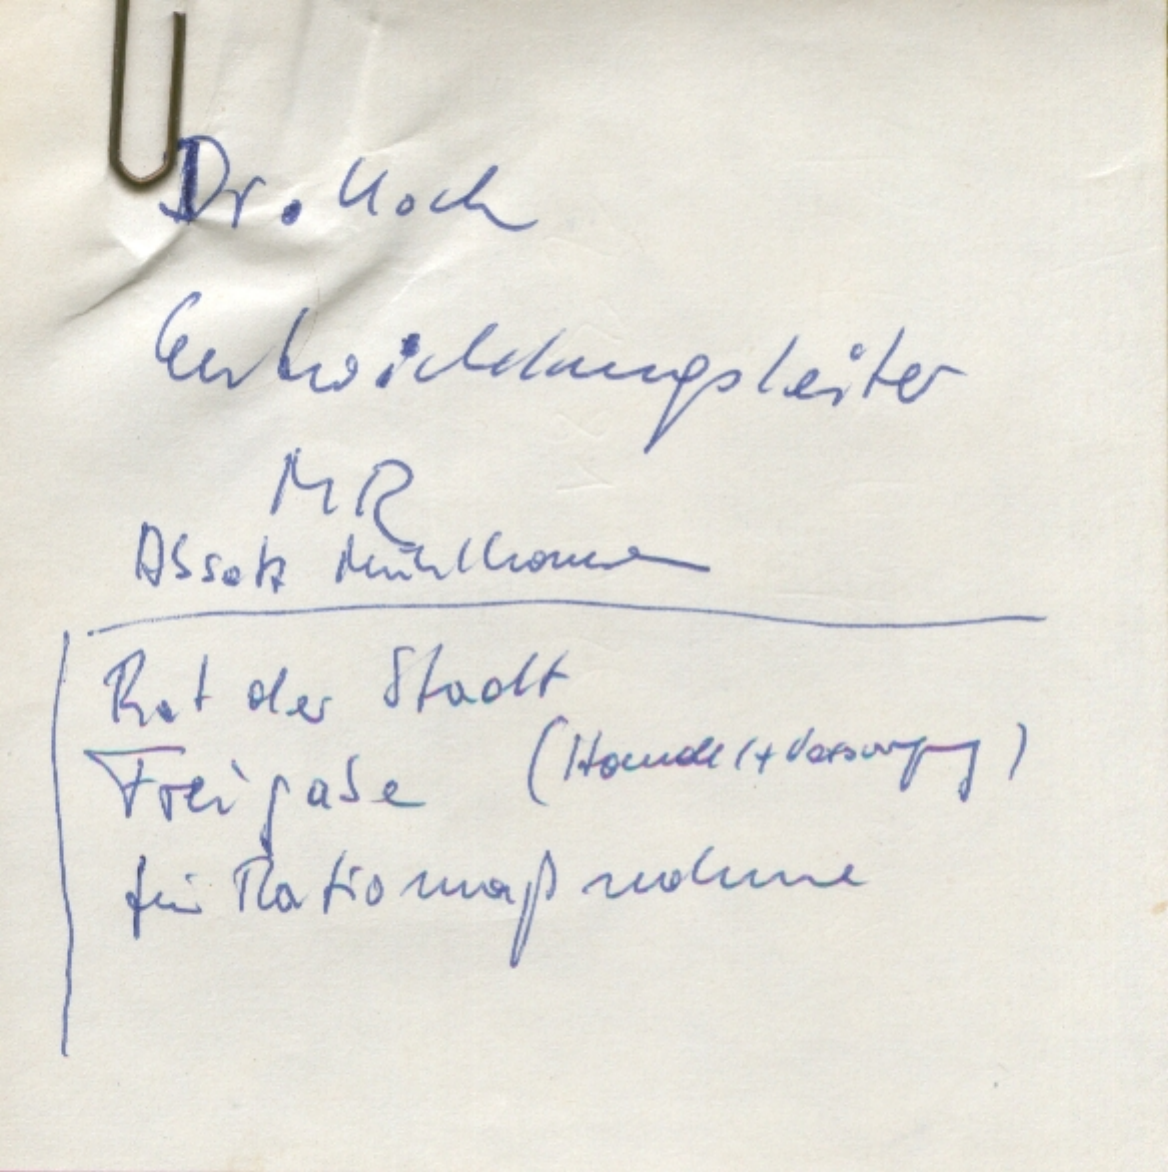 Dr. Koch
Entwicklungsleiter
MR
Absatz Mühlhausen
Rat der Stadt
Freigabe (Handel + Versorgung)
für Ratiomaßnahme